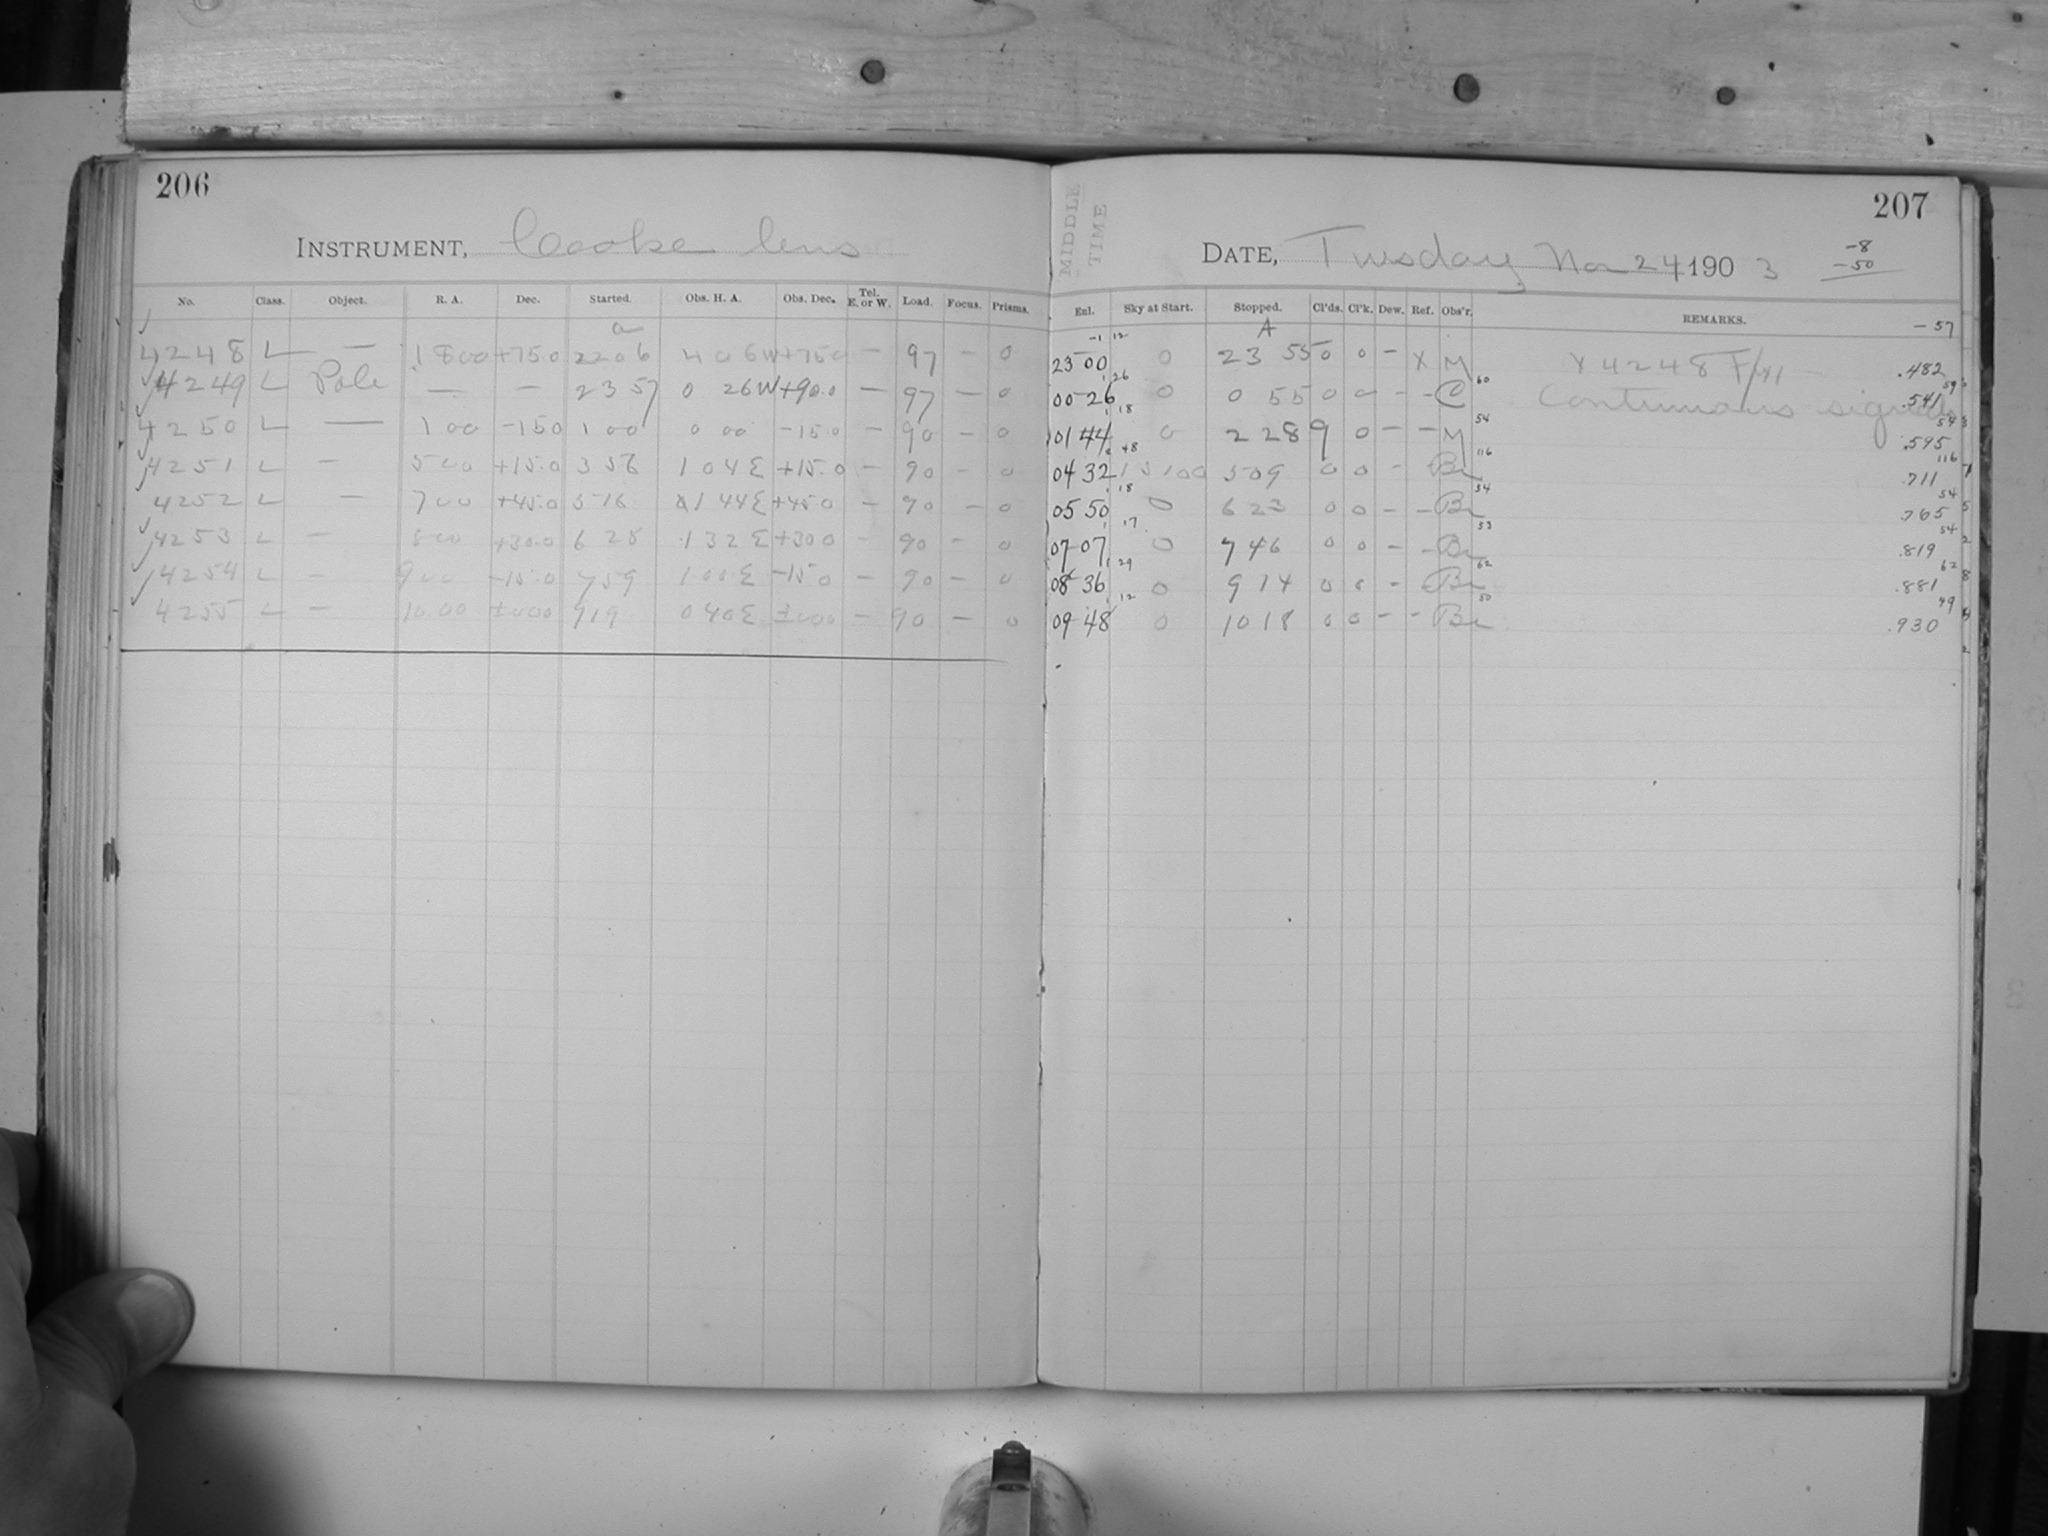 206
207
INSTRUMENT, Cooke lens
MIDDLE TIME
DATE, Tuesday Nov 24 1903
-8
-50
No. Class. Object. R. A. Dec. Started. Obs. H. A. Obs. Dec. Tel. E. or W. Load. Focus. Prisms. Enl. Sky at Start. Stopped. Cl'ds. Cl'k. Dew. Ref. Obs'r. REMARKS.
-57
a A
4248 L — 18 00 +75 0 22 06 4 06 W +75 0 — 97 — 0 23 00 0 23 55 0 0 — X M X 4248 .482
4249 L Pole — — 23 57 0 26 W +90.0 — 97 — 0 00 26 0 0 55 0 0 — - C Continuous signals .541
4250 L — 1 00 -15 0 1 00 0 00 -15.0 — 90 — 0 01 44 0 2 28 9 0 — — M .595
4251 L — 5 00 +15.0 3 56 1 04 E +15.0 — 90 — 0 04 32 5 09 0 0 - Br .711
4252 L — 7 00 +45.0 5 16 1 44 E +45 0 — 90 — 0 05 50 0 6 23 0 0 - - Br .765
4253 L — 8 00 +30.0 6 28 1 32 E +30 0 — 90 — 0 07 07 0 7 46 0 0 - - Br .819
4254 L — 9 00 -15.0 7 59 1 00 E -15 0 — 90 — 0 08 36 0 9 14 0 0 - Br .881
4255 L — 10.00 ±000 9 19 0 40 E ±000 — 90 — 0 09 48 0 10 18 0 0 - - Br .930